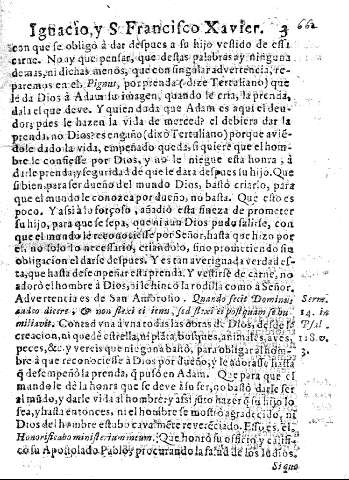 Ignacio, y S Francisco Xavier. 3 662
con que se obligó à dar despues a su hijo vestido de esta
carne. No ay que pensar, que destas palabras ay ninguna
demas, ni dichas menos, que con singular advertencia, re-
paremos en el, Pignus, por prenda (dize Tertuliano) que
le da Dios à Adam su imagen, quando le cria, la prenda,
dala el que deve. Y quien dada que Adam es aqui el deu-
dor; pues le hazen la vida de merced? el debiera dar la
prenda, no Dios? es engaño (dixo Tertuliano) porque avié-
dole dado la vida, empeñado queda, si quiere que el hom-
bre le confiesse por Dios, y no le niegue esta honra, à
darle prenda, y seguridad de que le dara despues su hijo. Que
si bien, para ser dueño del mundo Dios, bastó criarlo, para
que el mundo le conozca por dueño, no basta. Que esto es
poco. Y assi à lo forçoso, añadió esta fineza de prometer
su hijo, para que se sepa, que ni aun Dios pudo salirse, con
que el mundo le reconociesse por Señor, hasta que hizo por
el, no solo lo necessario, criandolo, sino prometiendo su
obligacion el darse despues. Y es tan averiguada verdad es-
ta, que hasta desempeñar esta prenda. Y vestirse de carne, no
adoró el hombre à Dios, ni le hincò la rodilla como à Señor.
Advertencia es de San Ambrosio. Quando fecit Dominus Serm.
audeo dicere, & non flexi ei genu, sed flexi ei postquam se hu- 14. in
miliavit. Corred vna à vna todas las obras de Dios, desde la Psal.
creacion, ni que de estrella, ni planta, bosques, animales, aves, 118. v.
peces, &c. y vereis que ningona bastó, para obligar al hom- 3.
bre à que reconociesse à Dios por dueño, y le adorasse hasta
q̃ desempeñó la prenda, q̃ puso en Adam. Que para que el
mundo le dè la honra que se deve à su ser, no bastó darle ser
al mũdo, y darle vida al hombre; y assi juró hazer q̃ su hijo lo
sea, y hasta entonces, ni el hombre se mostró agradecido, ni
Dios del hombre estubo cavalmẽte reverẽciado. Esso es, el
Honorificabo ministerium meum. Que honró su officio, y califi-
có su Apostolado Pablo, procurando la salud de los Iudios.
Sigue